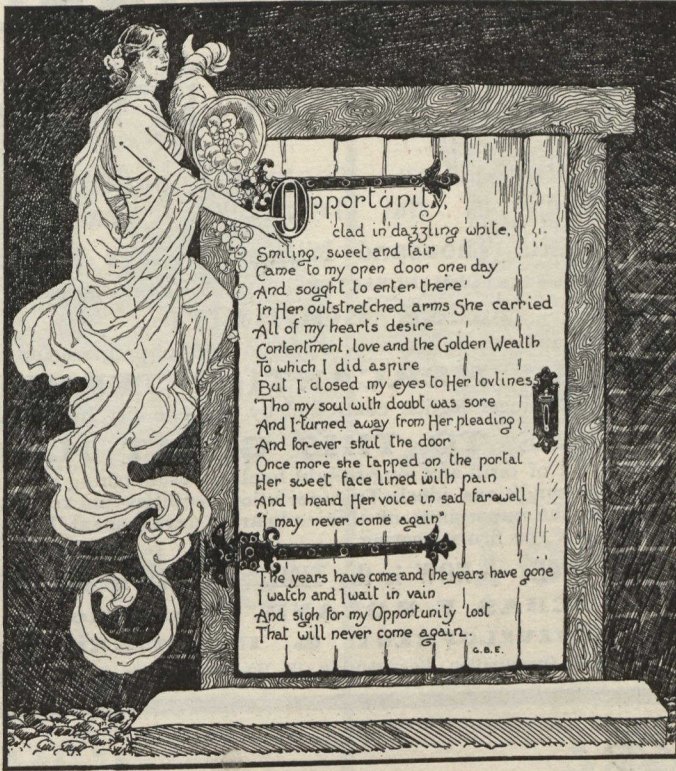 Opportunity,
clad in dazzling white,
Smiling, sweet and fair
Came to my open door one day
And sought to enter there
In Her outstretched arms She carried
All of my hearts desire
Contentment, love and the Golden Wealth
To which I did aspire
But I closed my eyes to Her lovlines
'Tho my soul with doubt was sore
And I turned away from Her pleading
And for-ever shut the door
Once more she tapped on the portal
Her sweet face lined with pain
And I heard Her voice in sad farewell
"I may never come again"
The years have come and the years have gone
I watch and I wait in vain
And sigh for my Opportunity lost
That will never come again.
G.B.E.